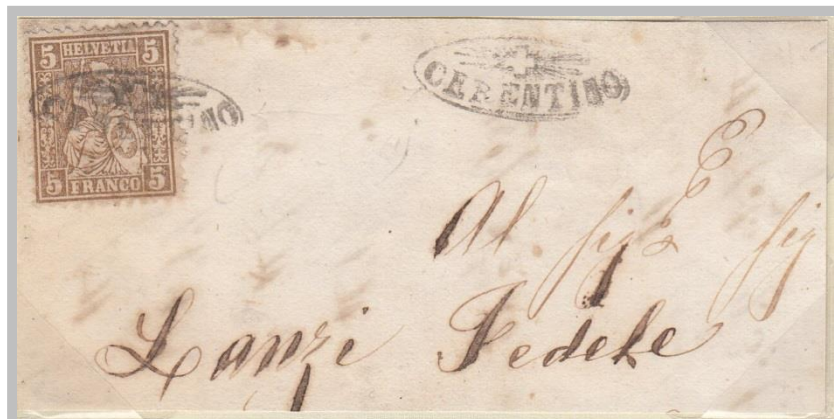 5 HELVETIA 5
5 FRANCO 5
CERENTINO
CERENTINO
Al sig.r sig
Lanzi Fedele